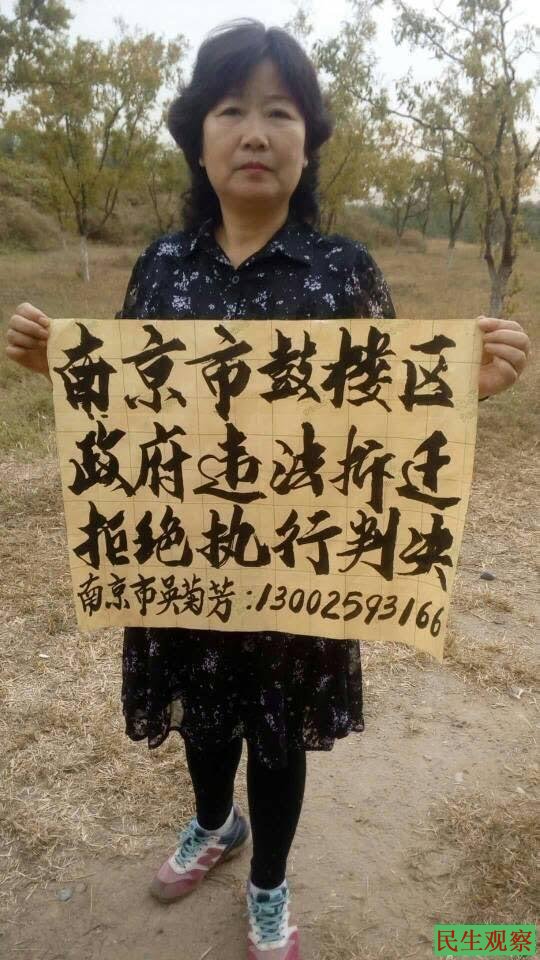 南京市鼓楼区
政府违法拆迁
拒绝执行判决
南京市吴菊芳:13002593166
民生观察